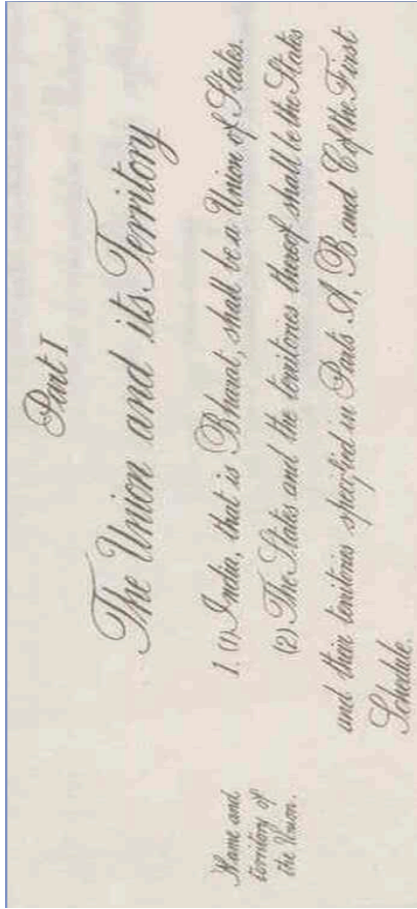 Part I
The Union and its Territory
Name and
territory of
the Union.
1. (1) India, that is Bharat, shall be a Union of States.
(2) The States and the territories thereof shall be the States
and their territories specified in Parts A, B and C of the First
Schedule.